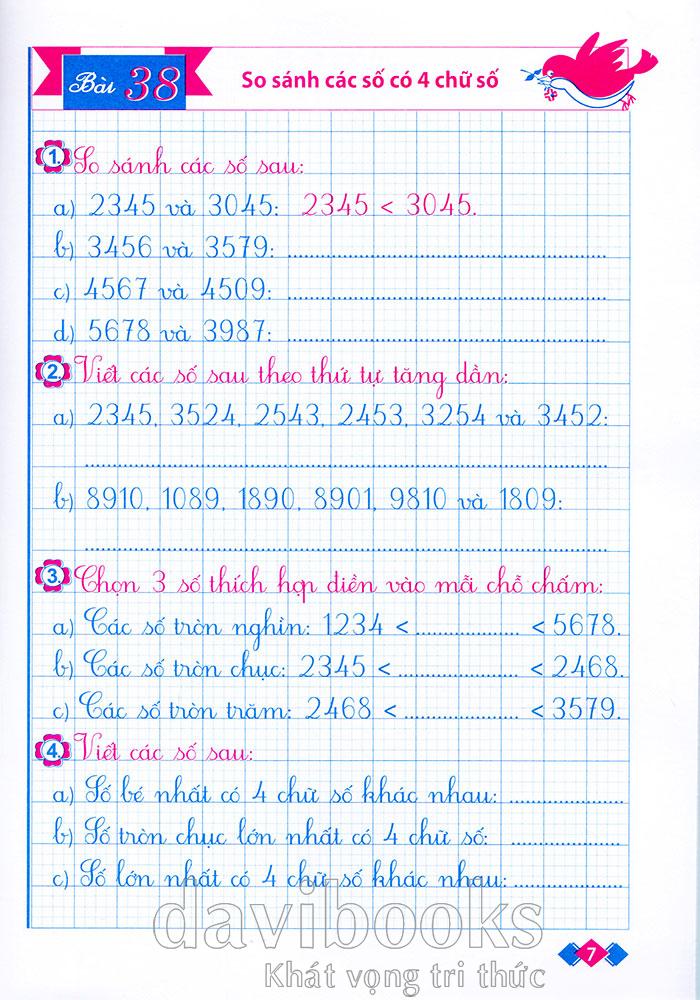 Bài 38
So sánh các số có 4 chữ số
1. So sánh các số sau:
a) 2345 và 3045: 2345 < 3045.
b) 3456 và 3579: ..........
c) 4567 và 4509: ..........
d) 5678 và 3987: ..........
2. Viết các số sau theo thứ tự tăng dần:
a) 2345, 3524, 2543, 2453, 3254 và 3452:
..........
b) 8910, 1089, 1890, 8901, 9810 và 1809:
..........
3. Chọn 3 số thích hợp điền vào mỗi chỗ chấm:
a) Các số tròn nghìn: 1234 < .......... < 5678.
b) Các số tròn chục: 2345 < .......... < 2468.
c) Các số tròn trăm: 2468 < .......... < 3579.
4. Viết các số sau:
a) Số bé nhất có 4 chữ số khác nhau: ..........
b) Số tròn chục lớn nhất có 4 chữ số: ..........
c) Số lớn nhất có 4 chữ số khác nhau: ..........
davibooks
Khát vọng tri thức
7